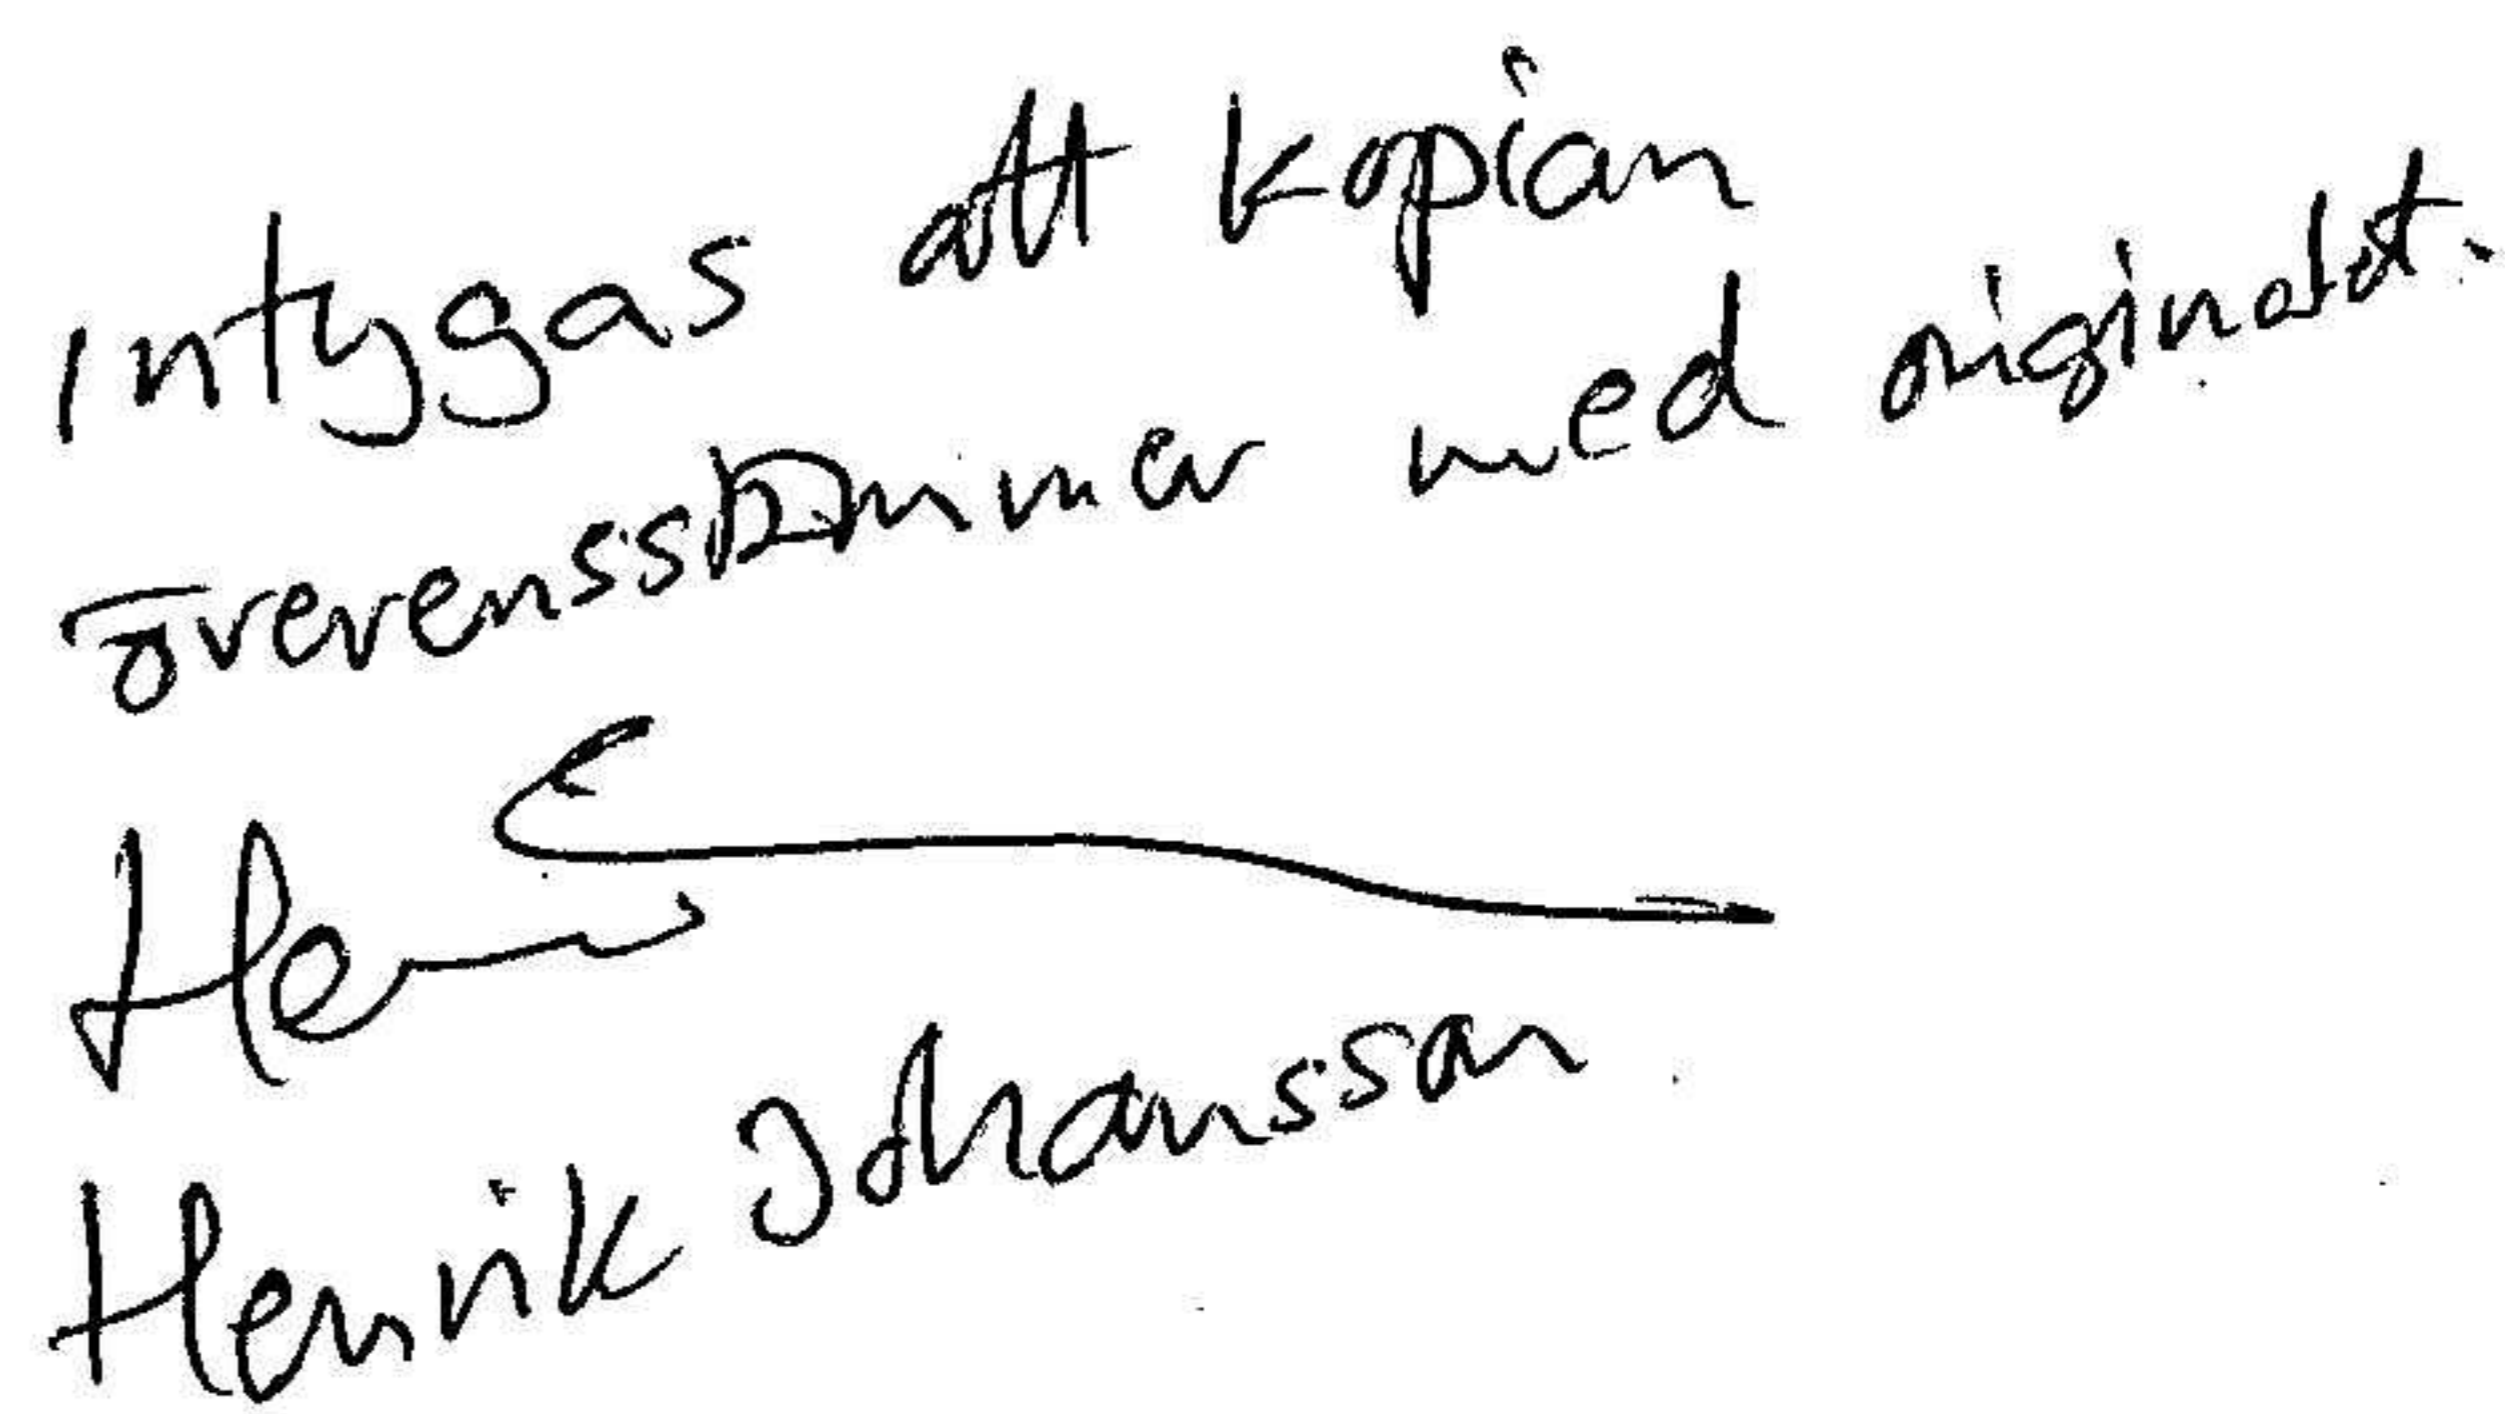 Intygas att kopian
överensstämmer med originalet.
Henrik Johansson